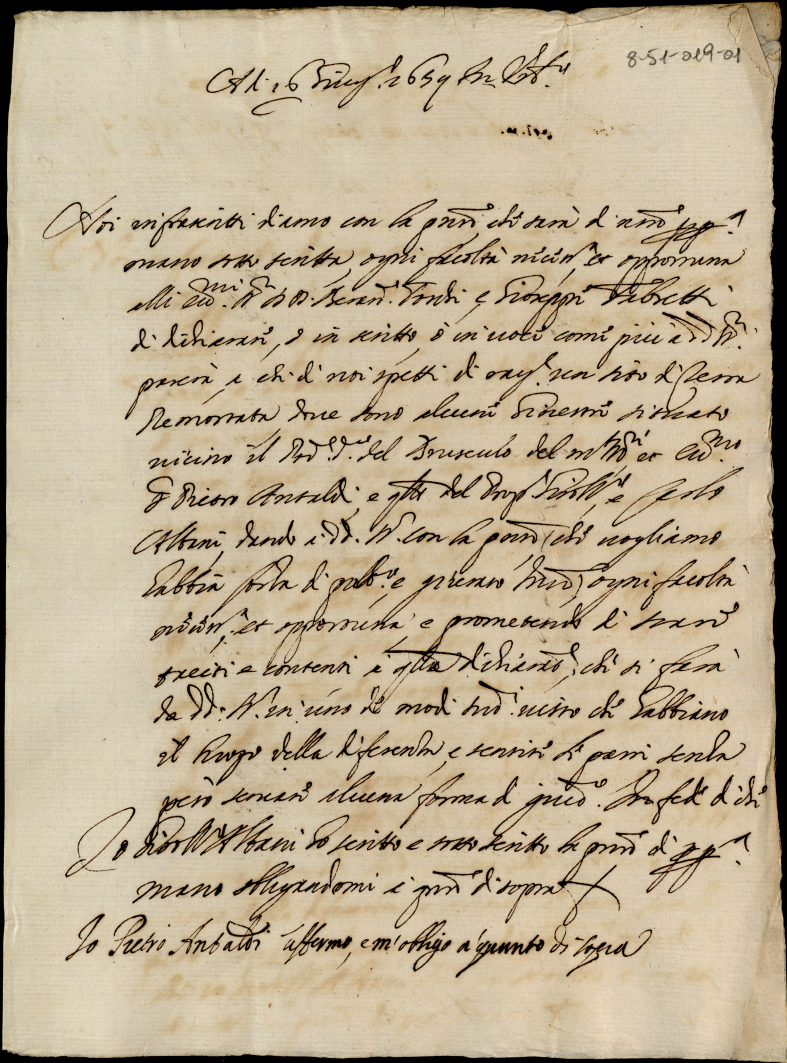 8-51-019-01
Adi 16 Giug.º 1659 In Urb.º
Noi infrascritti diamo con la pñte, che sarà di nr̃e pp.ª
mano sotto scritta, ogni facoltà necess.ª et opportuna
alli Ecc.mi SS.ri D. Berard.º Tondi, e Gioseppe Fabretti
di dichiarare, o in scritto, o in voce come più a dd. SS.ri
parerà, a chi di noi spetti di rag.e un sito di Terra
Remortata dove sono alcuni Ginestri situato
vicino il Pod.e d.º del Bruscculo del m.to et Ecc.mo
S. Pietro Antaldi, e qllo del Giorll, e Carlo
Albani, dando a dd. SS. con la pñte, che vogliamo
habbia forza di pub.ª, e giurato ogni facoltà
necess.ª, et opportuna, e promettendo di stare
taciti e contenti a qlla dichiarane, che si farà
da dd. SS. in uno de modi sud. visto che habbiano
il luogo della diferenza, e sentite le parti senza
però servare alcuna forma di giud.º. In fede di che
Io Albani ho scritto e sotto scritto la pñte di pp.ª
mano obligandomi a qto di sopra
Io Pietro Antaldi affermo, e m'obligo a quanto di sopra